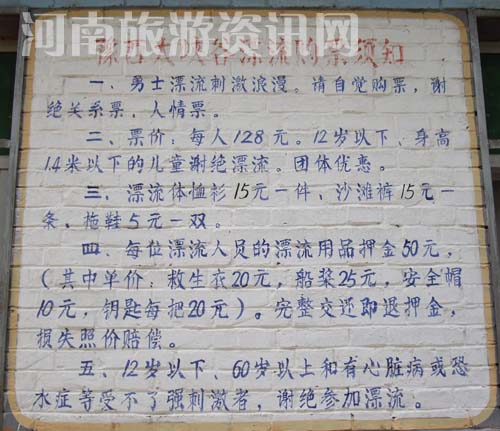 河南旅游资讯网
豫西大峡谷漂流购票须知
一、男士漂流刺激浪漫。请自觉购票，谢
绝关系票，人情票。
二、票价：每人128元。12岁以下、身高
1.4米以下的儿童谢绝漂流。团体优惠。
三、漂流体恤衫15元一件、沙滩裤15元一
条、拖鞋5元一双。
四、每位漂流人员的漂流用品押金50元，
（其中单价：救生衣20元，船桨25元，安全帽
10元，钥匙每把20元）。完整交还即退押金，
损失照价赔偿。
五、12岁以下、60岁以上和有心脏病或恐
水症等受不了强刺激者，谢绝参加漂流。